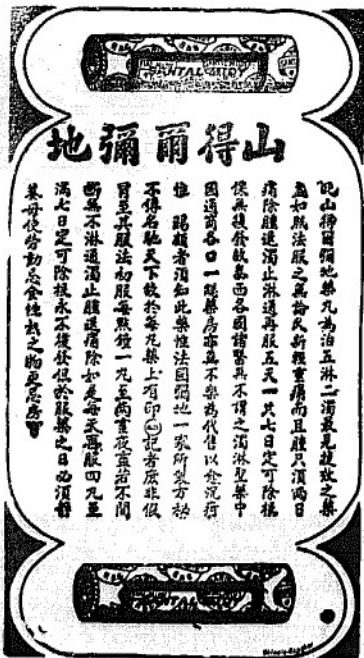 SANTAL MIDY
山得爾彌地
此山得爾彌地藥丸為治五淋二濁最見捷效之藥
盖如照法服之無論久新輕重痛而且腫只須兩日
痛除腫退濁止淋通再服五天一共七日定可除根
保無復發故泰西各國諸醫再不謂之濁淋聖藥中
國通商各口一藥房亦無不樂為代售以愈沉疴
惟 賜顧者須知此藥惟法國彌地一家所製方秘
不傳名馳天下故於每丸藥上有印記者庶非假
冒至其服法初服每點鐘一丸至兩晝夜盡若不間
斷無不淋通濁止腫退痛除如是每天再服四丸至
滿七日定可除根永不復發但於服藥之日必須靜
養毋使勞動忌食辣熱之物更忌房事
SANTAL MIDY